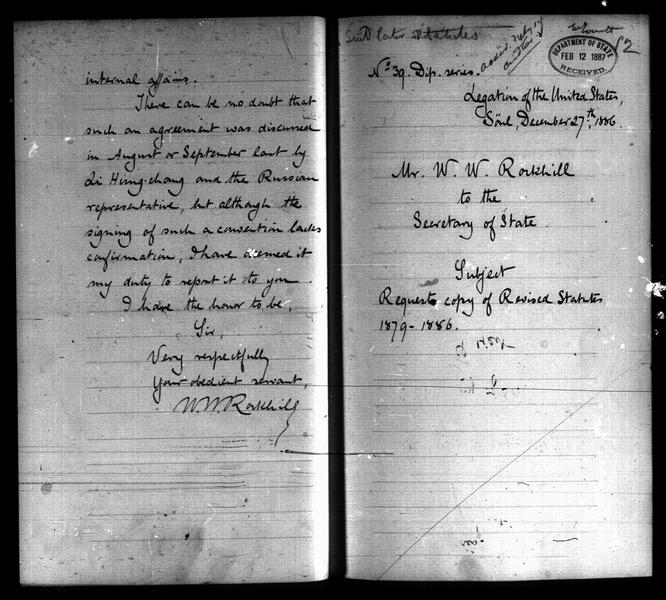 internal affairs.
There can be no doubt that
such an agreement was discussed
in August or September last by
Li Hung-chang and the Russian
representative, but although the
signing of such a convention lacks
confirmation, I have deemed it
my duty to report it to you.
I have the honor to be,
Sir,
Very respectfully
Your obedient servant,
W.W. Rockhill
Send later Statutes
DEPARTMENT OF STATE
FEB 12 1887
RECEIVED.
No 39. Dip. series.
Legation of the United States,
Söul, December 27th, 1886.
Mr. W. W. Rockhill
to the
Secretary of State
Subject
Requests copy of Revised Statutes
1879-1886.